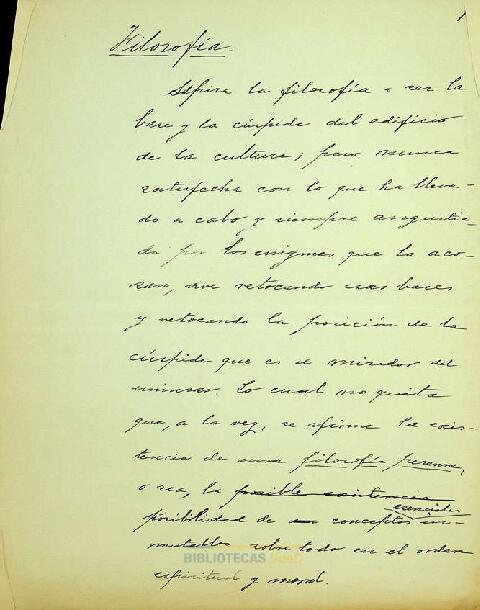 Filosofía
Aspira la filosofía a ser la
base y la cúspide del edificio
de la cultura; pero nunca
satisfecha con lo que ha lleva-
do a cabo y siempre angustia-
da por los enigmas que la aco-
san, vive retocando esas bases
y retocando la posición de la
cúspide que es el mirador del
universo. Lo cual no quita
que, a la vez, se afirme la exis-
tencia de una filosofía perenne,
o sea, la posible existencia
esencial
posibilidad de conceptos in-
mutables sobre todo en el orden
BIBLIOTECAS UdeC
espiritual y moral.